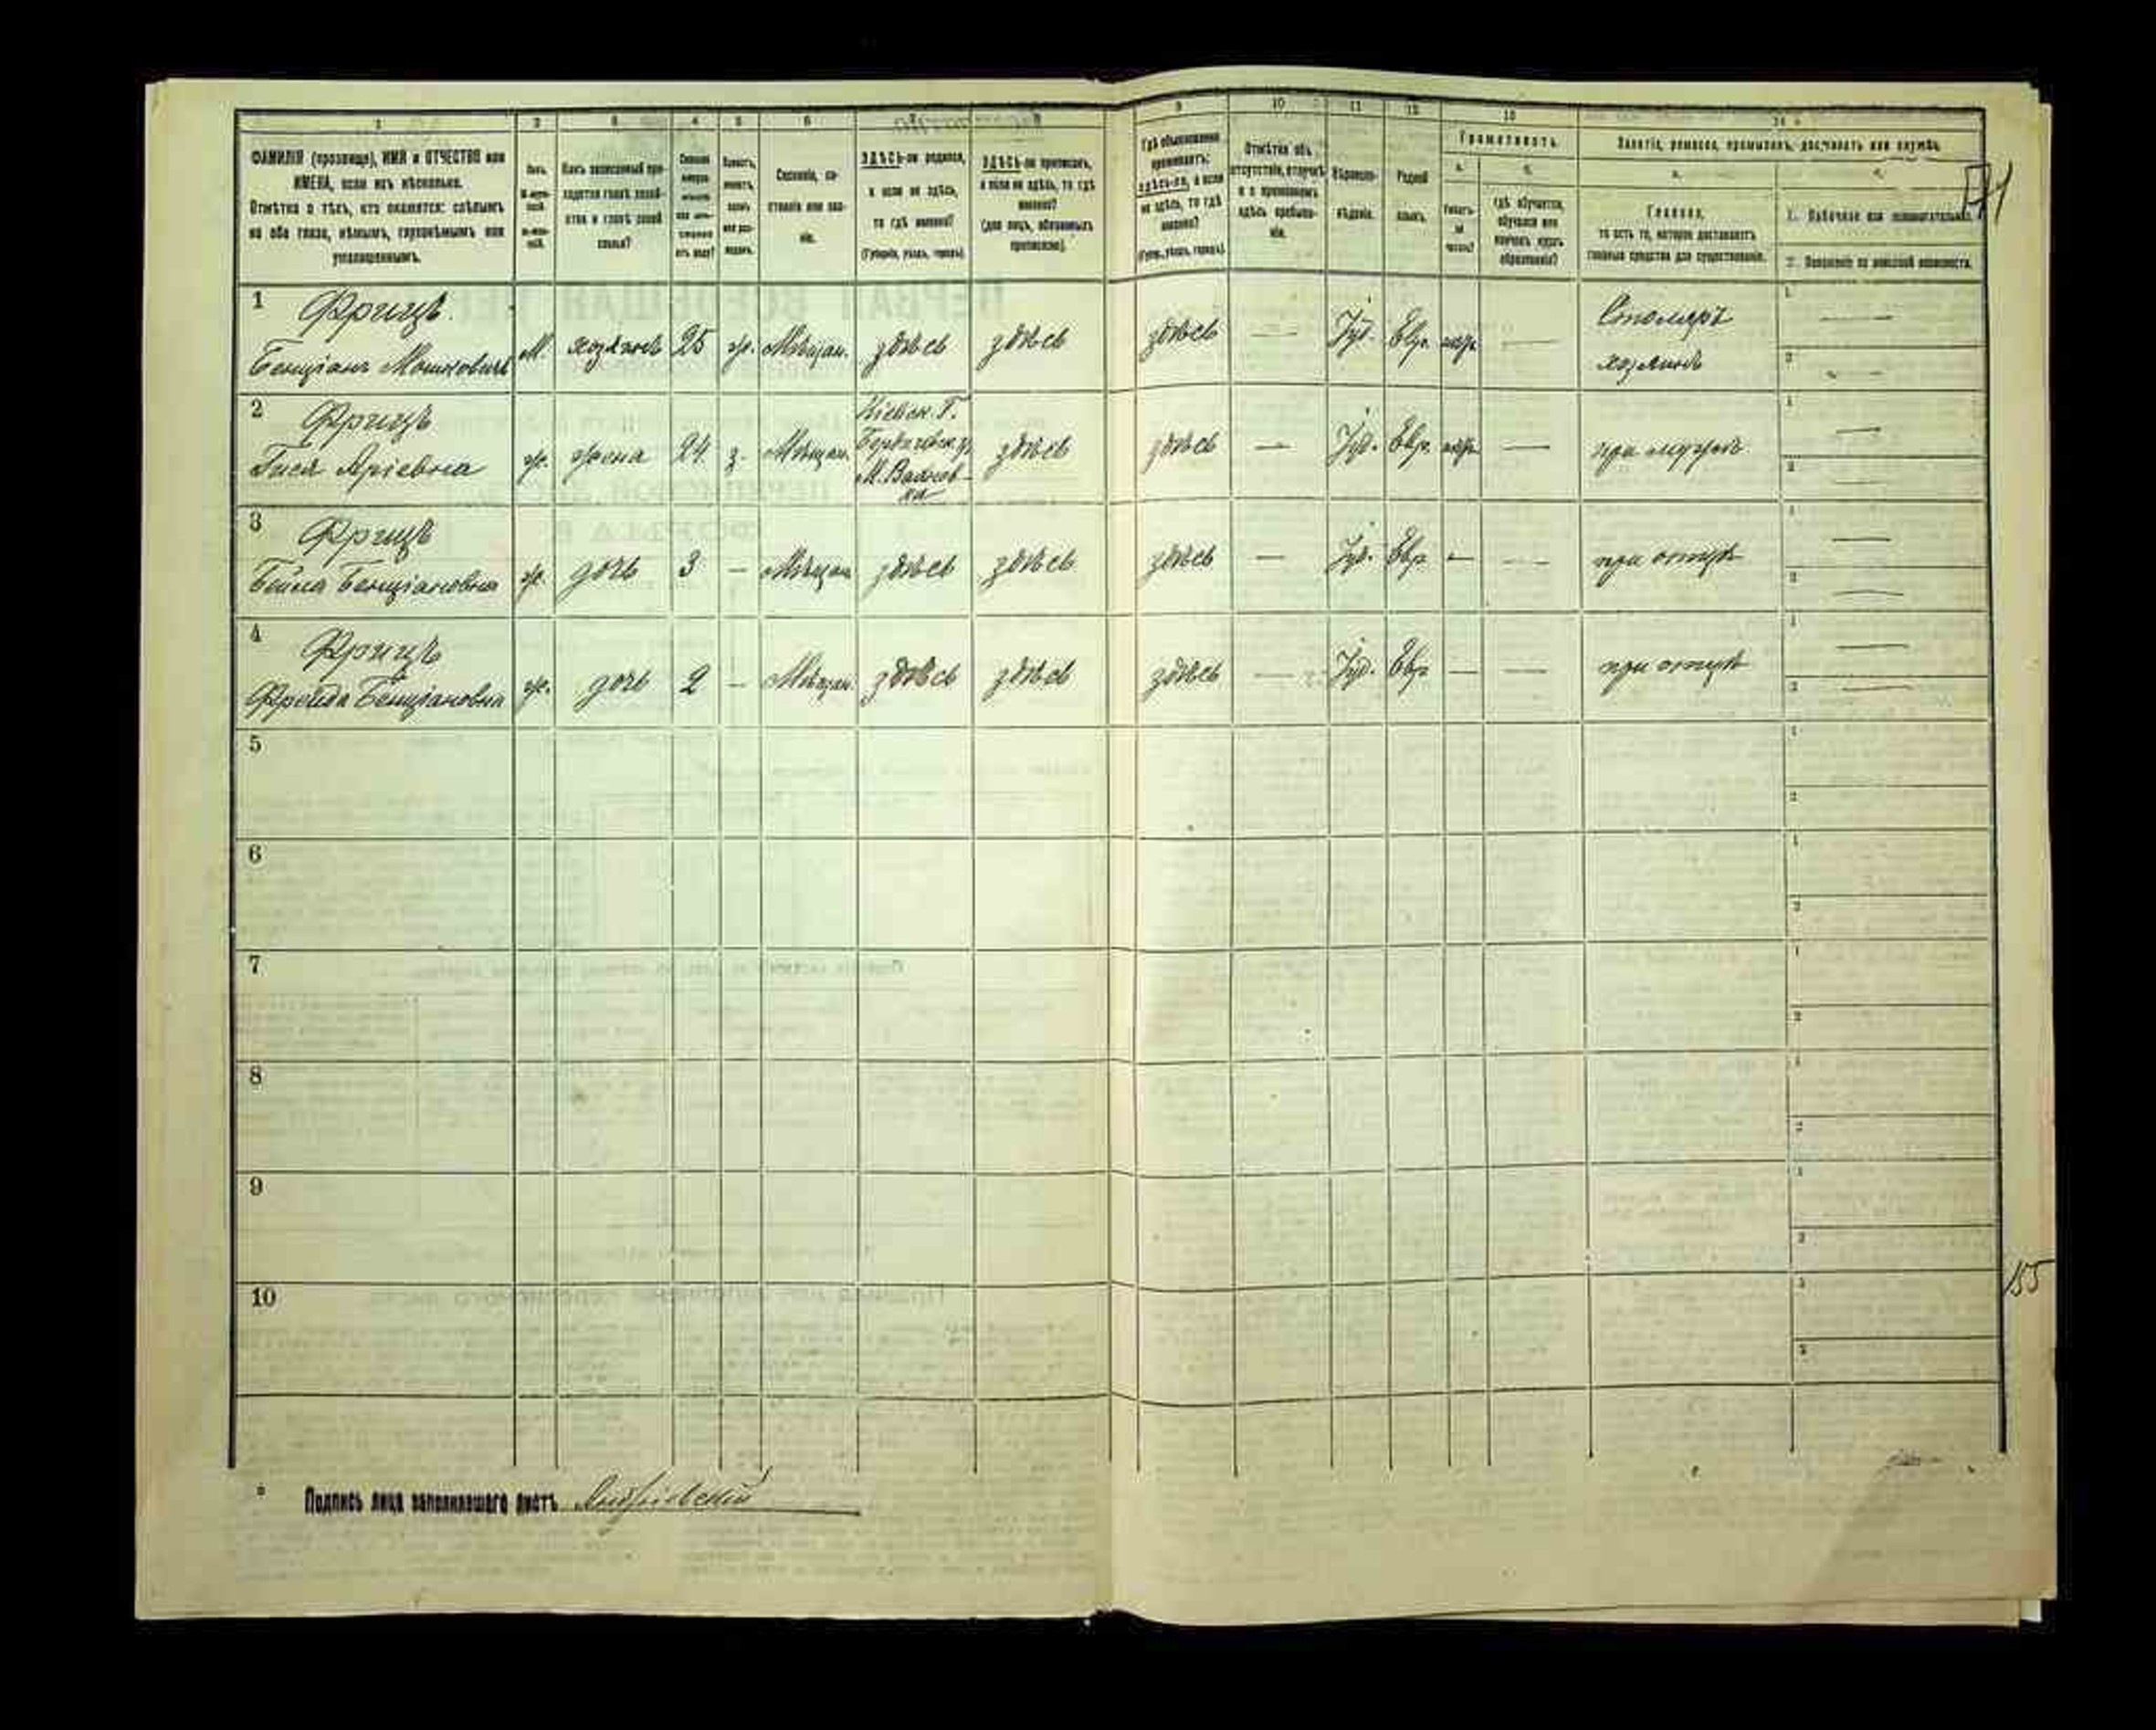 1
2
3
4
5
6
7
8
9
10
11
12
13
14
ФАМИЛІЯ (прозвище), ИМЯ и ОТЧЕСТВО или
ИМЕНА, если ихъ нѣсколько.
Отмѣтка о тѣхъ, кто окажется: слѣпымъ
на оба глаза, нѣмымъ, глухонѣмымъ или
умалишеннымъ.
Полъ.
Какъ записанный при-
ходится главѣ хозяй-
ства и главѣ своей
семьи?
Сословіе, со-
стояніе или зва-
ніе.
ЗДѢСЬ-ли родился,
а если не здѣсь,
то гдѣ именно?
(Губернія, уѣздъ, городъ).
ЗДѢСЬ-ли приписанъ,
а если не здѣсь, то гдѣ
именно?
(для лицъ, обязанныхъ
припискою).
Гдѣ обыкновенно
проживаетъ:
здѣсь-ли, а если
не здѣсь, то гдѣ
именно?
(Губер., уѣздъ, городъ).
Отмѣтка объ
отсутствіи, отлучкѣ
и о временномъ
здѣсь пребыва-
ніи.
Вѣроиспо-
вѣданіе.
Родной
языкъ.
Грамотность.
а.
б.
Умѣетъ-
ли
читать?
гдѣ обучается,
обучался или
кончилъ курсъ
образованія?
Занятіе, ремесло, промыселъ, должность или служба.
Главное,
то есть то, которое доставляетъ
главныя средства для существованія.
1. Побочное или вспомогательное.
2. Положеніе по воинской повинности.
71
1 Фрицъ
Бенціанъ Мошковичъ
М. хозяинъ 25 ж. Мѣщан. здѣсь здѣсь здѣсь — Іуд. Евр. негр. —
Столяръ
хозяинъ
1 —
2 —
2 Фрицъ
Гися Аріевна
ж. жена 24 з. Мѣщан.
Кіевск. Г.
Бердичевск. у.
М. Вахнов-
ка
здѣсь здѣсь — Іуд. Евр. негр. — при мужѣ
1 —
2 —
3 Фрицъ
Бейла Бенціановна
ж. дочь 3 — Мѣщан. здѣсь здѣсь здѣсь — Іуд. Евр. — — при отцѣ
1 —
2 —
4 Фрицъ
Фрейда Бенціановна
ж. дочь 2 — Мѣщан. здѣсь здѣсь здѣсь — Іуд. Евр. — — при отцѣ
1 —
2 —
5
1
2
6
1
2
7
1
2
8
1
2
9
1
2
10
1
2
155
Подпись лица заполнившаго листъ Андріевскій